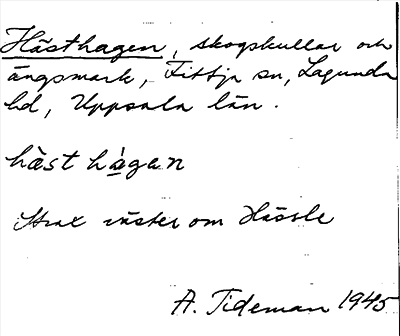 Hästhagen, skogskullar och
ängsmark, Fittja sn, Lagunda
hd, Uppsala län.
hàst hàgan
Strax väster om Hässle
A. Tideman 1945